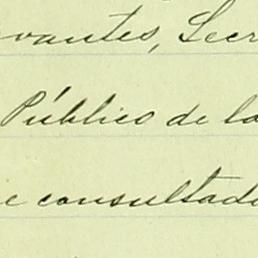 vantes, Secr
Público de la
e consultado